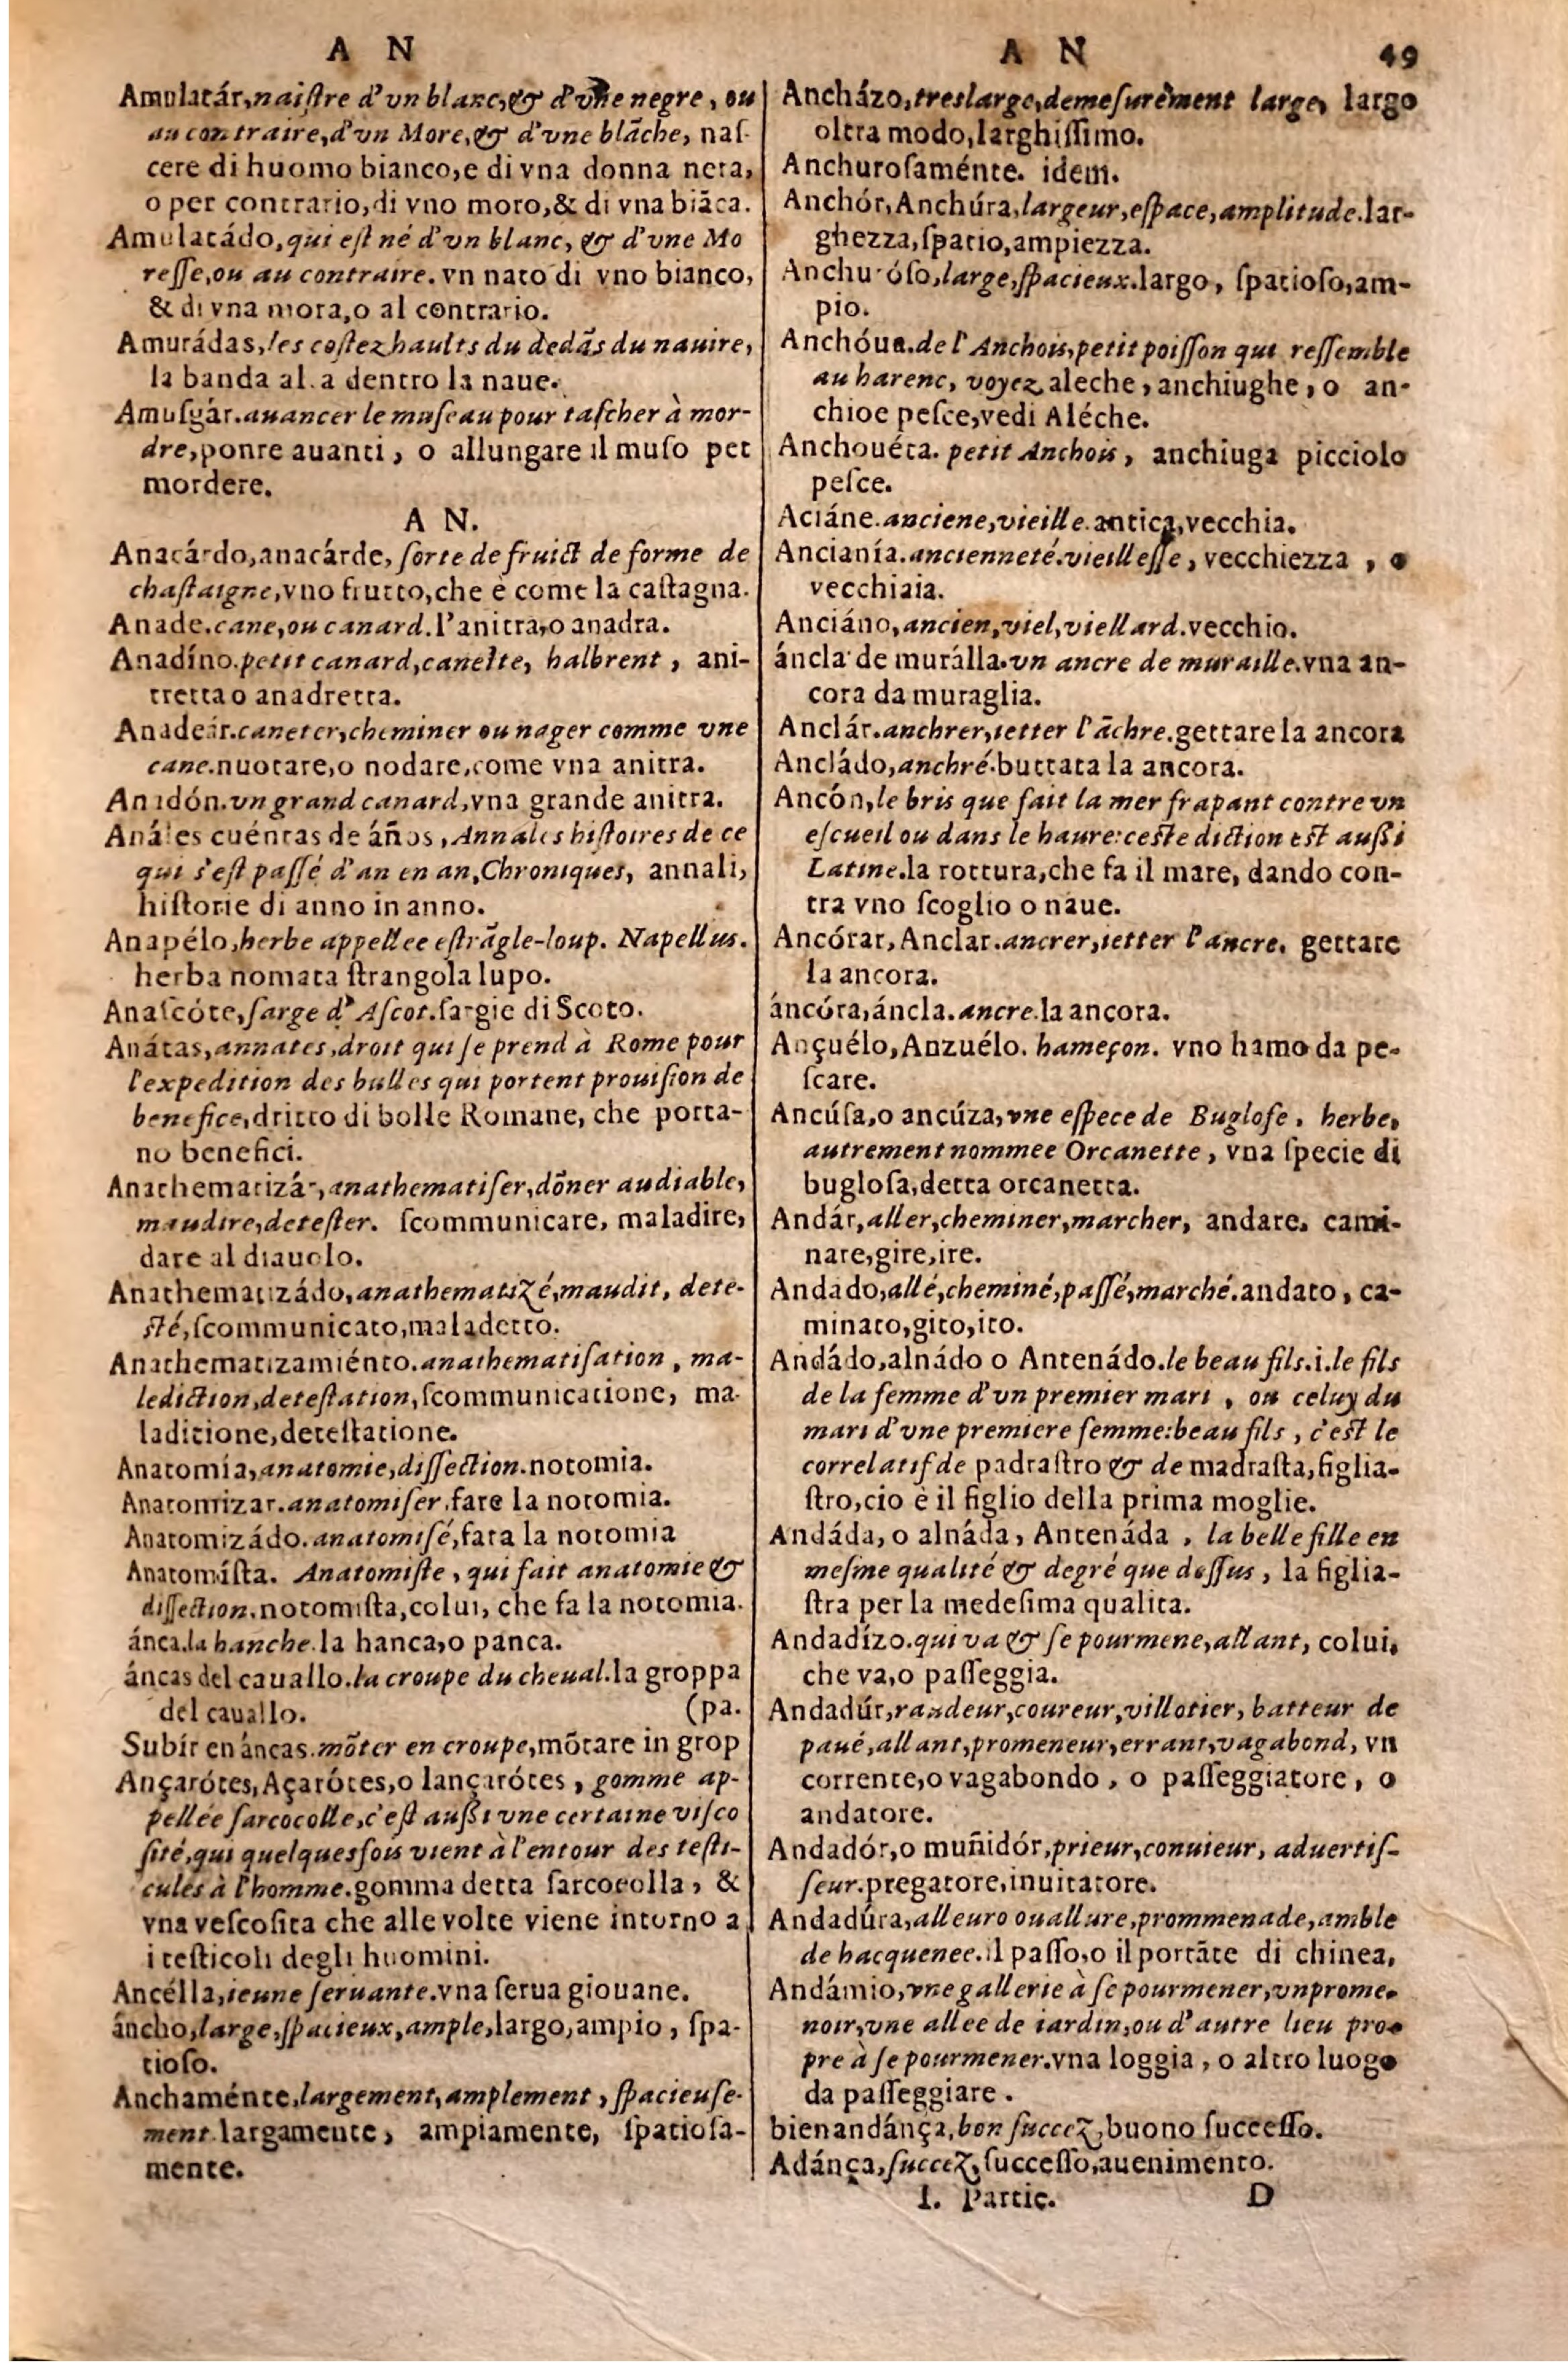 A N
Amulatár,naiſtre d'vn blanc,& d'vne negre, ou
au contraire,d'vn More,& d'vne blāche, naſ-
cere di huomo bianco,e di vna donna nera,
o per contrario,di vno moro,& di vna biāca.
Amulatádo,qui eſt né d'vn blanc, & d'vne Mo
reſſe,ou au contraire. vn nato di vno bianco,
& di vna mora,o al contrario.
Amurádas,les coſtez haults du dedās du nauire,
la banda al a dentro la naue.
Amuſgár.auancer le muſeau pour taſcher à mor-
dre,ponre auanti, o allungare il muſo per
mordere.
A N.
Anacárdo,anacárde, ſorte de fruict de forme de
chaſtaigne,vno frutto,che è come la caſtagna.
Anade.cane,ou canard.l'anitra,o anadra.
Anadíno.petit canard,canette, halbrent, ani-
tretta o anadretta.
Anadeár.caneter,cheminer ou nager comme vne
cane.nuotare,o nodare,come vna anitra.
Anadón.vn grand canard,vna grande anitra.
Análes cuéntas de áños, Annales hiſtoires de ce
qui s'eſt paſſé d'an en an,Chroniques, annali,
hiſtorie di anno in anno.
Anapélo,herbe appellee eſtrāgle-loup. Napellus.
herba nomata ſtrangola lupo.
Anaſcóte,ſarge d'Aſcot.ſargie di Scoto.
Anátas,annates,droit qui ſe prend à Rome pour
l'expedition des bulles qui portent prouiſion de
benefice,dritto di bolle Romane, che porta-
no benefici.
Anathematizár,anathematiſer,dōner au diable,
maudire,deteſter. ſcommunicare, maladire,
dare al diauolo.
Anathematizádo,anathematizé,maudit, dete-
ſté,ſcommunicato,maladetto.
Anathematizamiénto.anathematiſation, ma-
lediction,deteſtation,ſcommunicatione, ma-
laditione,deteſtatione.
Anatomía,anatomie,diſſection.notomia.
Anatomizar.anatomiſer,fare la notomia.
Anatomizádo.anatomiſé,fata la notomia
Anatomíſta. Anatomiſte, qui fait anatomie &
diſſection.notomiſta,colui, che fa la notomia.
ánca.la hanche.la hanca,o panca.
áncas del cauallo.la croupe du cheual.la groppa
del cauallo. (pa.
Subír en áncas.mōter en croupe,mōtare in grop
Ançarótes,Açarótes,o lançarótes, gomme ap-
pellée ſarcocolle,c'eſt außi vne certaine viſco
ſité,qui quelquesfois vient à l'entour des teſti-
cules à l'homme.gomma detta ſarcocolla, &
vna veſcoſita che alle volte viene intorno a
i teſticoli degli huomini.
Ancélla,ieune ſeruante.vna ſerua giouane.
áncho,large,ſpacieux,ample,largo,ampio, ſpa-
tioſo.
Anchaménte,largement,amplement, ſpacieuſe-
ment.largamente, ampiamente, ſpatioſa-
mente.
A N 49
Ancházo,treslarge,demeſurément large, largo
oltra modo,larghiſſimo.
Anchuroſaménte. idem.
Anchór,Anchúra,largeur,eſpace,amplitude.lar-
ghezza,ſpatio,ampiezza.
Anchuróſo,large,ſpacieux.largo, ſpatioſo,am-
pio.
Anchóua.de l'Anchois,petit poiſſon qui reſſemble
au harenc, voyez aleche, anchiughe, o an-
chioe peſce,vedi Aléche.
Anchouéta. petit Anchois, anchiuga picciolo
peſce.
Aciáne.anciene,vieille.antica,vecchia.
Ancianía.ancienneté.vieilleſſe, vecchiezza, o
vecchiaia.
Anciáno,ancien,viel,viellard.vecchio.
áncla de murálla.vn ancre de muraille.vna an-
cora da muraglia.
Anclár.anchrer,ietter l'āchre.gettare la ancora
Ancládo,anchré.buttata la ancora.
Ancón,le bris que fait la mer frapant contre vn
eſcueil ou dans le haure:ceſte diction eſt außi
Latine.la rottura,che fa il mare, dando con-
tra vno ſcoglio o naue.
Ancórar,Anclar.ancrer,ietter l'ancre. gettare
la ancora.
áncóra,áncla.ancre.la ancora.
Ançuélo,Anzuélo. hameçon. vno hamo da pe-
ſcare.
Ancúſa,o ancúza,vne eſpece de Buglose, herbe,
autrement nommee Orcanette, vna ſpecie di
bugloſa,detta orcanetta.
Andár,aller,cheminer,marcher, andare. cami-
nare,gire,ire.
Andado,allé,cheminé,paſſé,marché.andato, ca-
minato,gito,ito.
Andádo,alnádo o Antenádo.le beau fils.i.le fils
de la femme d'vn premier mari, ou celuy du
mari d'vne premiere femme:beau fils, c'eſt le
correlatif de padraſtro & de madraſta,figlia-
ſtro,cio è il figlio della prima moglie.
Andáda, o alnáda, Antenáda, la belle fille en
meſme qualité & degré que deſſus, la figlia-
ſtra per la medeſima qualita.
Andadízo.qui va & ſe pourmene,allant, colui,
che va,o paſſeggia.
Andadúr,raudeur,coureur,villotier, batteur de
paué,allant,promeneur,errant,vagabond, vn
corrente,o vagabondo, o paſſeggiatore, o
andatore.
Andadór,o muñidór,prieur,conuieur, aduertiſ-
ſeur.pregatore,inuitatore.
Andadúra,alleuro ou allure,prommenade,amble
de hacquenee.il paſſo,o il portāte di chinea.
Andámio,vne gallerie à ſe pourmener,vn prome-
noir,vne allee de iardin,ou d'autre lieu pro-
pre à ſe pourmener.vna loggia, o altro luogo
da paſſeggiare.
bienandánça,bon ſuccez,buono ſucceſſo.
Adánça,ſuccez,ſucceſſo,auenimento.
I. Partie. D